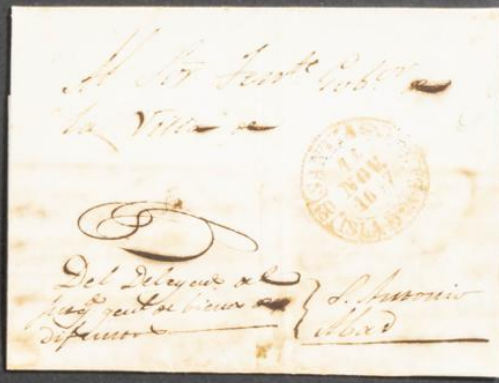 Al Sor Tente Gobor
la Villa de
NOV
ISLA DE
Del Delegado del
Juzgo genl de bienes de
difuntos
S. Antonio
Abad